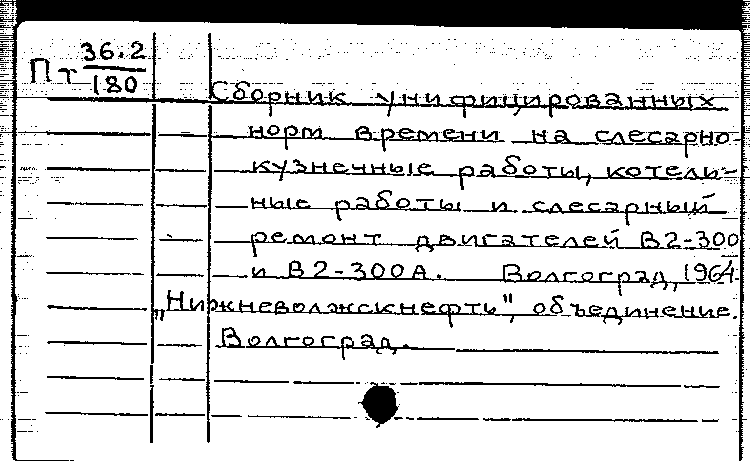 Пт 36.2/180
Сборник унифицированных
норм времени на слесарно-
кузнечные работы, котель-
ные работы и слесарный
ремонт двигателей В2-300
и В2-300А. Волгоград, 1964
„Нижневолжскнефть", объединение.
Волгоград.